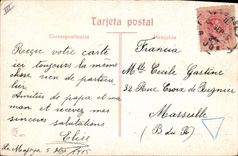 III
Tarjeta postal
Correspondencia
Dirección
Reçu votre carte
ici toujours la même
chose rien de particu
lier
Amitiés de papa et ma
man et recevez mes
sincères salutations
Elise
5
Francia
Mlle Cecile Gastine
32 Rue Croix de Reynier
Marseille
(B. du R)